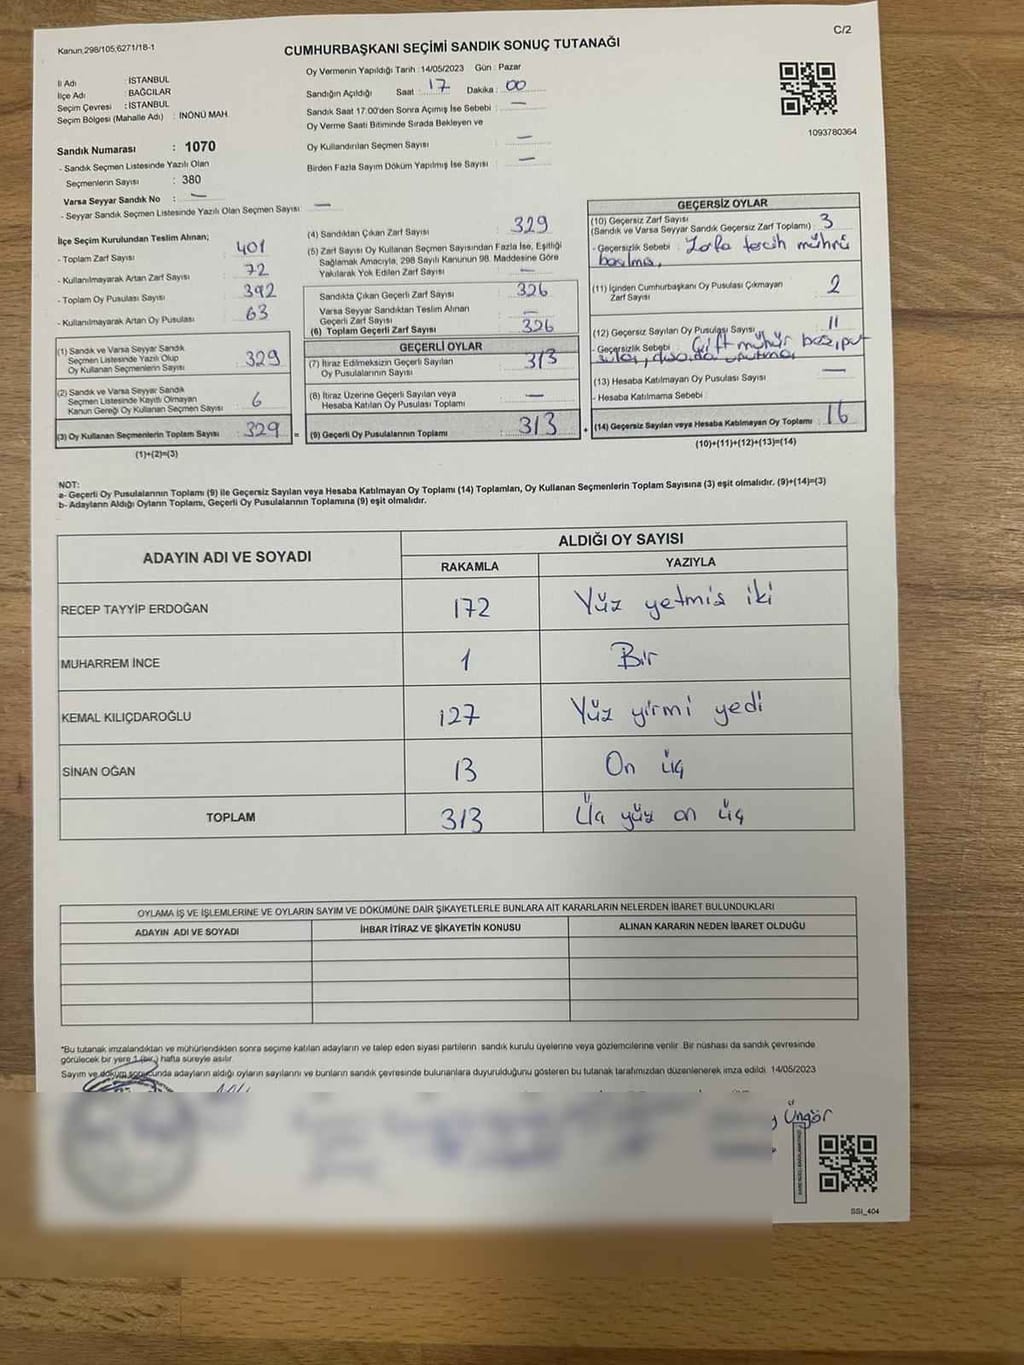 Kanun,298/105,6271/18-1
C/2
CUMHURBAŞKANI SEÇİMİ SANDIK SONUÇ TUTANAĞI
İl Adı : İSTANBUL
İlçe Adı : BAĞCILAR
Seçim Çevresi : İSTANBUL
Seçim Bölgesi (Mahalle Adı) : İNÖNÜ MAH.
Sandık Numarası : 1070
- Sandık Seçmen Listesinde Yazılı Olan
Seçmenlerin Sayısı : 380
Varsa Seyyar Sandık No : —
- Seyyar Sandık Seçmen Listesinde Yazılı Olan Seçmen Sayısı : —
Oy Vermenin Yapıldığı Tarih : 14/05/2023 Gün : Pazar
Sandığın Açıldığı Saat : 17 Dakika : 00
Sandık Saat 17:00'den Sonra Açımış İse Sebebi : —
Oy Verme Saati Bitiminde Sırada Bekleyen ve
Oy Kullandırılan Seçmen Sayısı : —
Birden Fazla Sayım Döküm Yapılmış İse Sayısı : —
1093780364
İlçe Seçim Kurulundan Teslim Alınan;
- Toplam Zarf Sayısı : 401
- Kullanılmayarak Artan Zarf Sayısı : 72
- Toplam Oy Pusulası Sayısı : 392
- Kullanılmayarak Artan Oy Pusulası : 63
(1) Sandık ve Varsa Seyyar Sandık
Seçmen Listesinde Yazılı Olup
Oy Kullanan Seçmenlerin Sayısı : 329
(2) Sandık ve Varsa Seyyar Sandık
Seçmen Listesinde Kayıtlı Olmayan
Kanun Gereği Oy Kullanan Seçmen Sayısı : 6
(3) Oy Kullanan Seçmenlerin Toplam Sayısı : 329 =
(1)+(2)=(3)
(4) Sandıktan Çıkan Zarf Sayısı : 329
(5) Zarf Sayısı Oy Kullanan Seçmen Sayısından Fazla İse, Eşitliği
Sağlamak Amacıyla, 298 Sayılı Kanunun 98. Maddesine Göre
Yakılarak Yok Edilen Zarf Sayısı : —
Sandıkta Çıkan Geçerli Zarf Sayısı : 326
Varsa Seyyar Sandıktan Teslim Alınan
Geçerli Zarf Sayısı : —
(6) Toplam Geçerli Zarf Sayısı : 326
GEÇERLİ OYLAR
(7) İtiraz Edilmeksizin Geçerli Sayılan
Oy Pusulalarının Sayısı : 313
(8) İtiraz Üzerine Geçerli Sayılan veya
Hesaba Katılan Oy Pusulası Toplamı : —
(9) Geçerli Oy Pusulalarının Toplamı : 313 +
GEÇERSİZ OYLAR
(10) Geçersiz Zarf Sayısı : 3
(Sandık ve Varsa Seyyar Sandık Geçersiz Zarf Toplamı)
- Geçersizlik Sebebi : Zarfa tercih mührü
basılmış.
(11) İçinden Cumhurbaşkanı Oy Pusulası Çıkmayan
Zarf Sayısı : 2
(12) Geçersiz Sayılan Oy Pusulası Sayısı : 11
- Geçersizlik Sebebi : Çift mühür
(13) Hesaba Katılmayan Oy Pusulası Sayısı : —
- Hesaba Katılmama Sebebi :
(14) Geçersiz Sayılan veya Hesaba Katılmayan Oy Toplamı : 16
(10)+(11)+(12)+(13)=(14)
NOT:
a- Geçerli Oy Pusulalarının Toplamı (9) ile Geçersiz Sayılan veya Hesaba Katılmayan Oy Toplamı (14) Toplamları, Oy Kullanan Seçmenlerin Toplam Sayısına (3) eşit olmalıdır. (9)+(14)=(3)
b- Adayların Aldığı Oyların Toplamı, Geçerli Oy Pusulalarının Toplamına (9) eşit olmalıdır.
ADAYIN ADI VE SOYADI
ALDIĞI OY SAYISI
RAKAMLA YAZIYLA
RECEP TAYYİP ERDOĞAN 172 Yüz yetmis iki
MUHARREM İNCE 1 Bir
KEMAL KILIÇDAROĞLU 127 Yüz yirmi yedi
SİNAN OĞAN 13 On üç
TOPLAM 313 Üç yüz on üç
OYLAMA İŞ VE İŞLEMLERİNE VE OYLARIN SAYIM VE DÖKÜMÜNE DAİR ŞİKAYETLERLE BUNLARA AİT KARARLARIN NELERDEN İBARET BULUNDUKLARI
ADAYIN ADI VE SOYADI İHBAR İTİRAZ VE ŞİKAYETİN KONUSU ALINAN KARARIN NEDEN İBARET OLDUĞU
*Bu tutanak imzalandıktan ve mühürlendikten sonra seçime katılan adayların ve talep eden siyasi partilerin sandık kurulu üyelerine veya gözlemcilerine verilir. Bir nüshası da sandık çevresinde
görülecek bir yere 1 (bir) hafta süreyle asılır.
Sayım ve döküm sonucunda adayların aldığı oyların sayılarını ve bunların sandık çevresinde bulunanlara duyurulduğunu gösteren bu tutanak tarafımızdan düzenlenerek imza edildi. 14/05/2023
Üngör
SSI_404